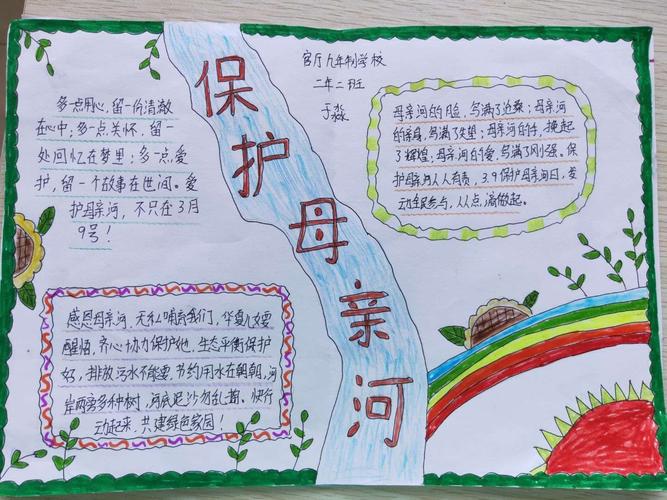 保护母亲河
官厅九年制学校
二年二班
于淼
多点用心,留一份清澈
在心中;多一点关怀,留一
处回忆在梦里;多一点爱
护,留一个故事在世间。爱
护母亲河,不只在3月
9号!
母亲河的脸,写满了沧桑;母亲河
的亲身,写满了失望;母亲河的情,撩起
了辉煌;母亲河的爱,写满了刚强。保
护母亲河人人有责,3.9保护母亲河日,发
动全民参与,从点滴做起。
感恩母亲河,无私哺育我们,华夏儿女要
醒悟,齐心协力保护她,生态平衡保护
好,排放污水不能要,节约用水在朝朝,河
岸两旁多种树,河底泥沙勿乱掏。快行
动起来,共建绿色家园!